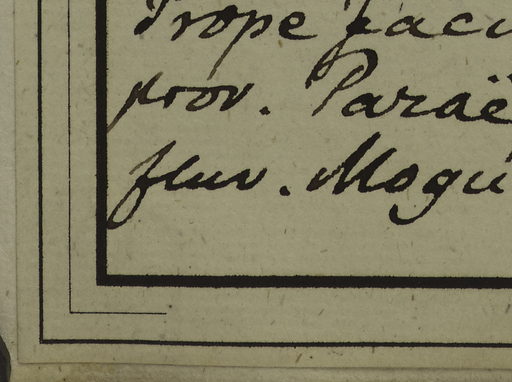 Prope Jacu
prov. Paraë
fluv. Mogú